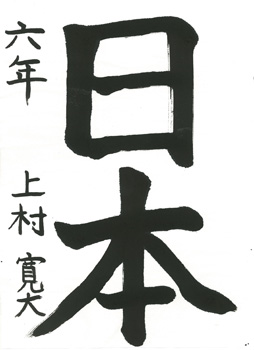 日本
六年 上村寛大